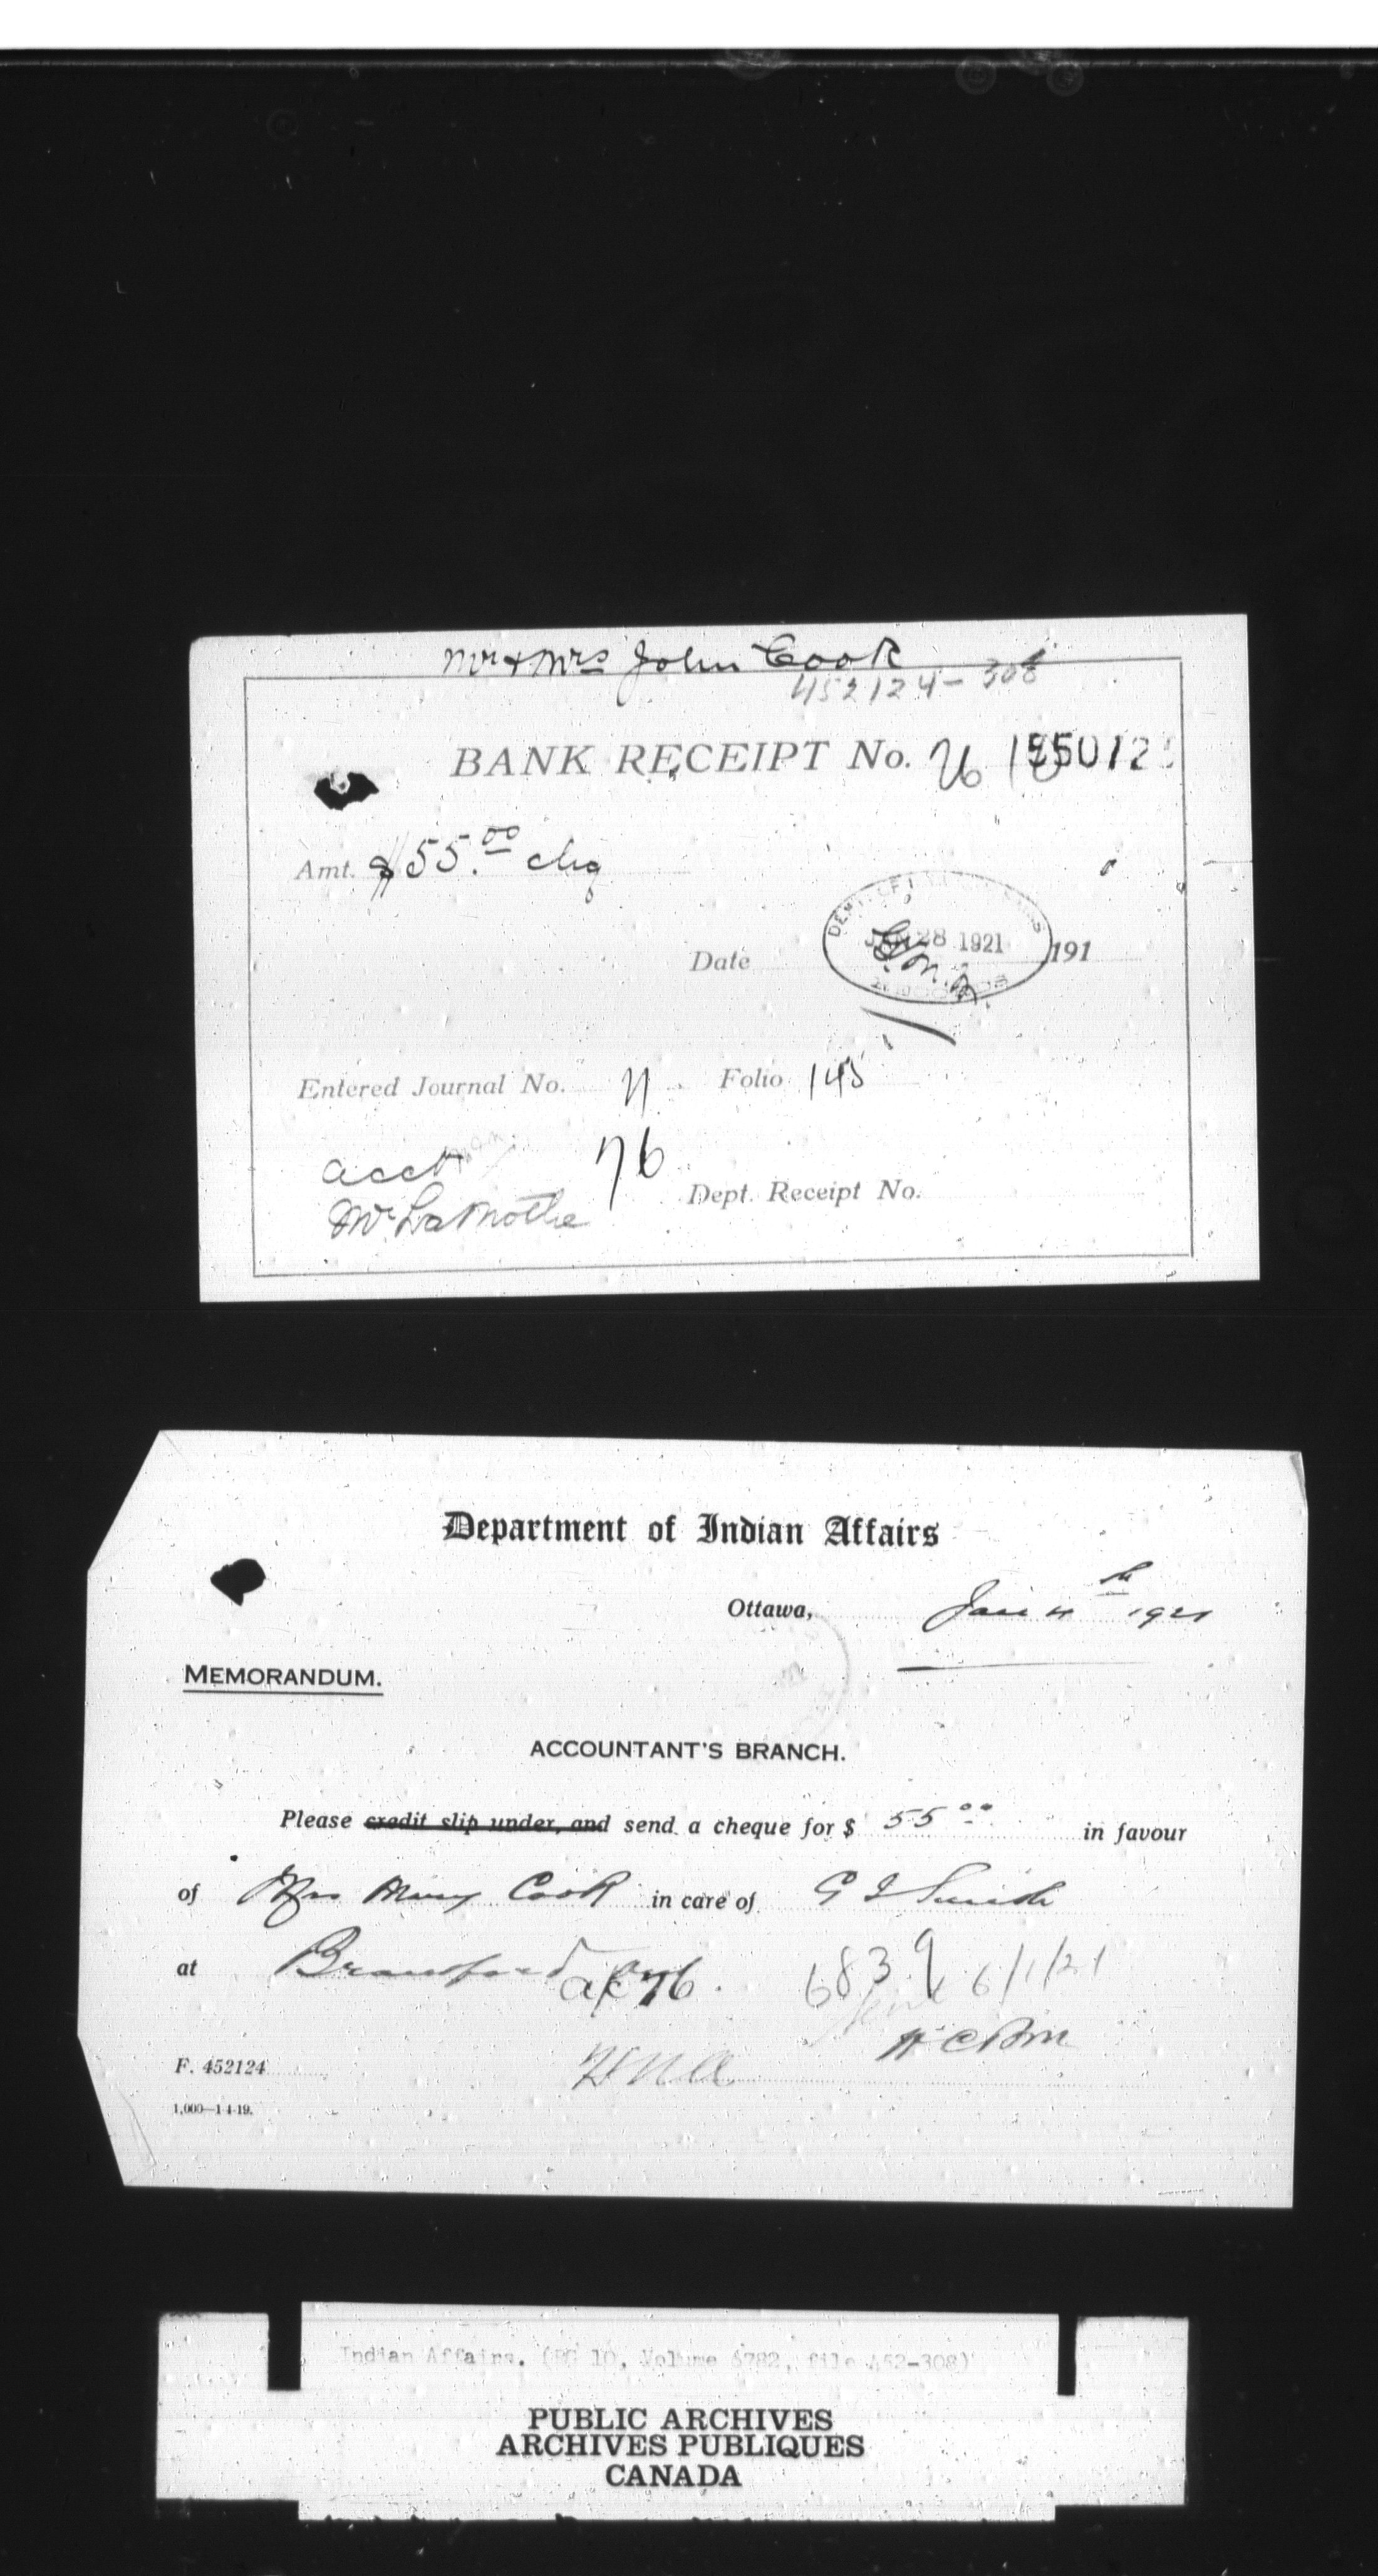 Mr & Mrs John Cook
452124-308
BANK RECEIPT No. 76
Amt. $55.00 chq
JAN 28 1921
Date 191
Entered Journal No. 71 Folio 145
acct 76
Mr. LaMothe Dept. Receipt No.
Department of Indian Affairs
Ottawa, Jan 4th 1921
MEMORANDUM.
ACCOUNTANT'S BRANCH.
Please credit slip under, and send a cheque for $ 55 00 in favour
of Mrs Mary Cook in care of G I Smith
at Brantford Ont
a/c 76. 6839 6/1/21
F. 452124
1,000—1-4-19.
Indian Affairs. (RG 10, Volume 6782, file 452-308)
PUBLIC ARCHIVES
ARCHIVES PUBLIQUES
CANADA